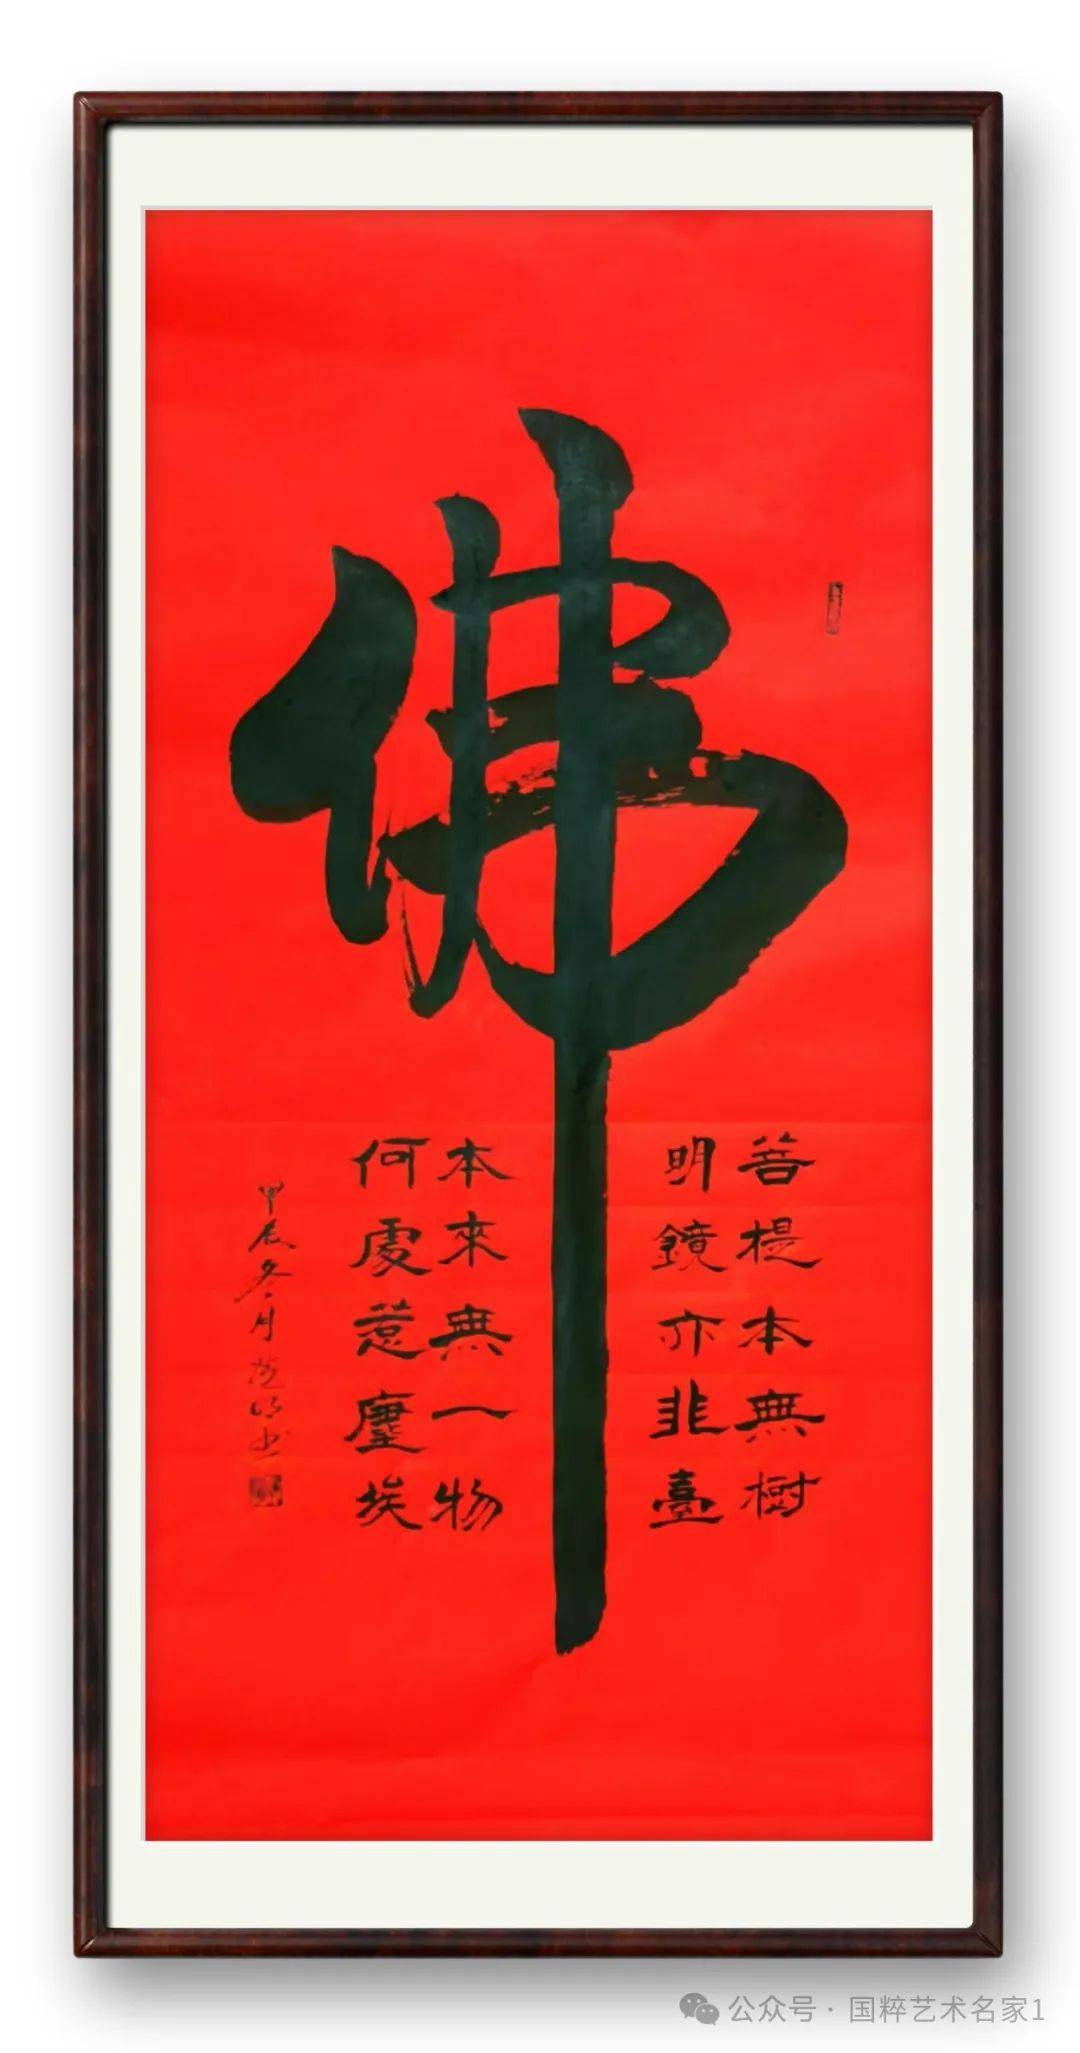 佛
菩提本無樹
明鏡亦非臺
本來無一物
何處惹塵埃
甲辰冬月
公众号 · 国粹艺术名家1